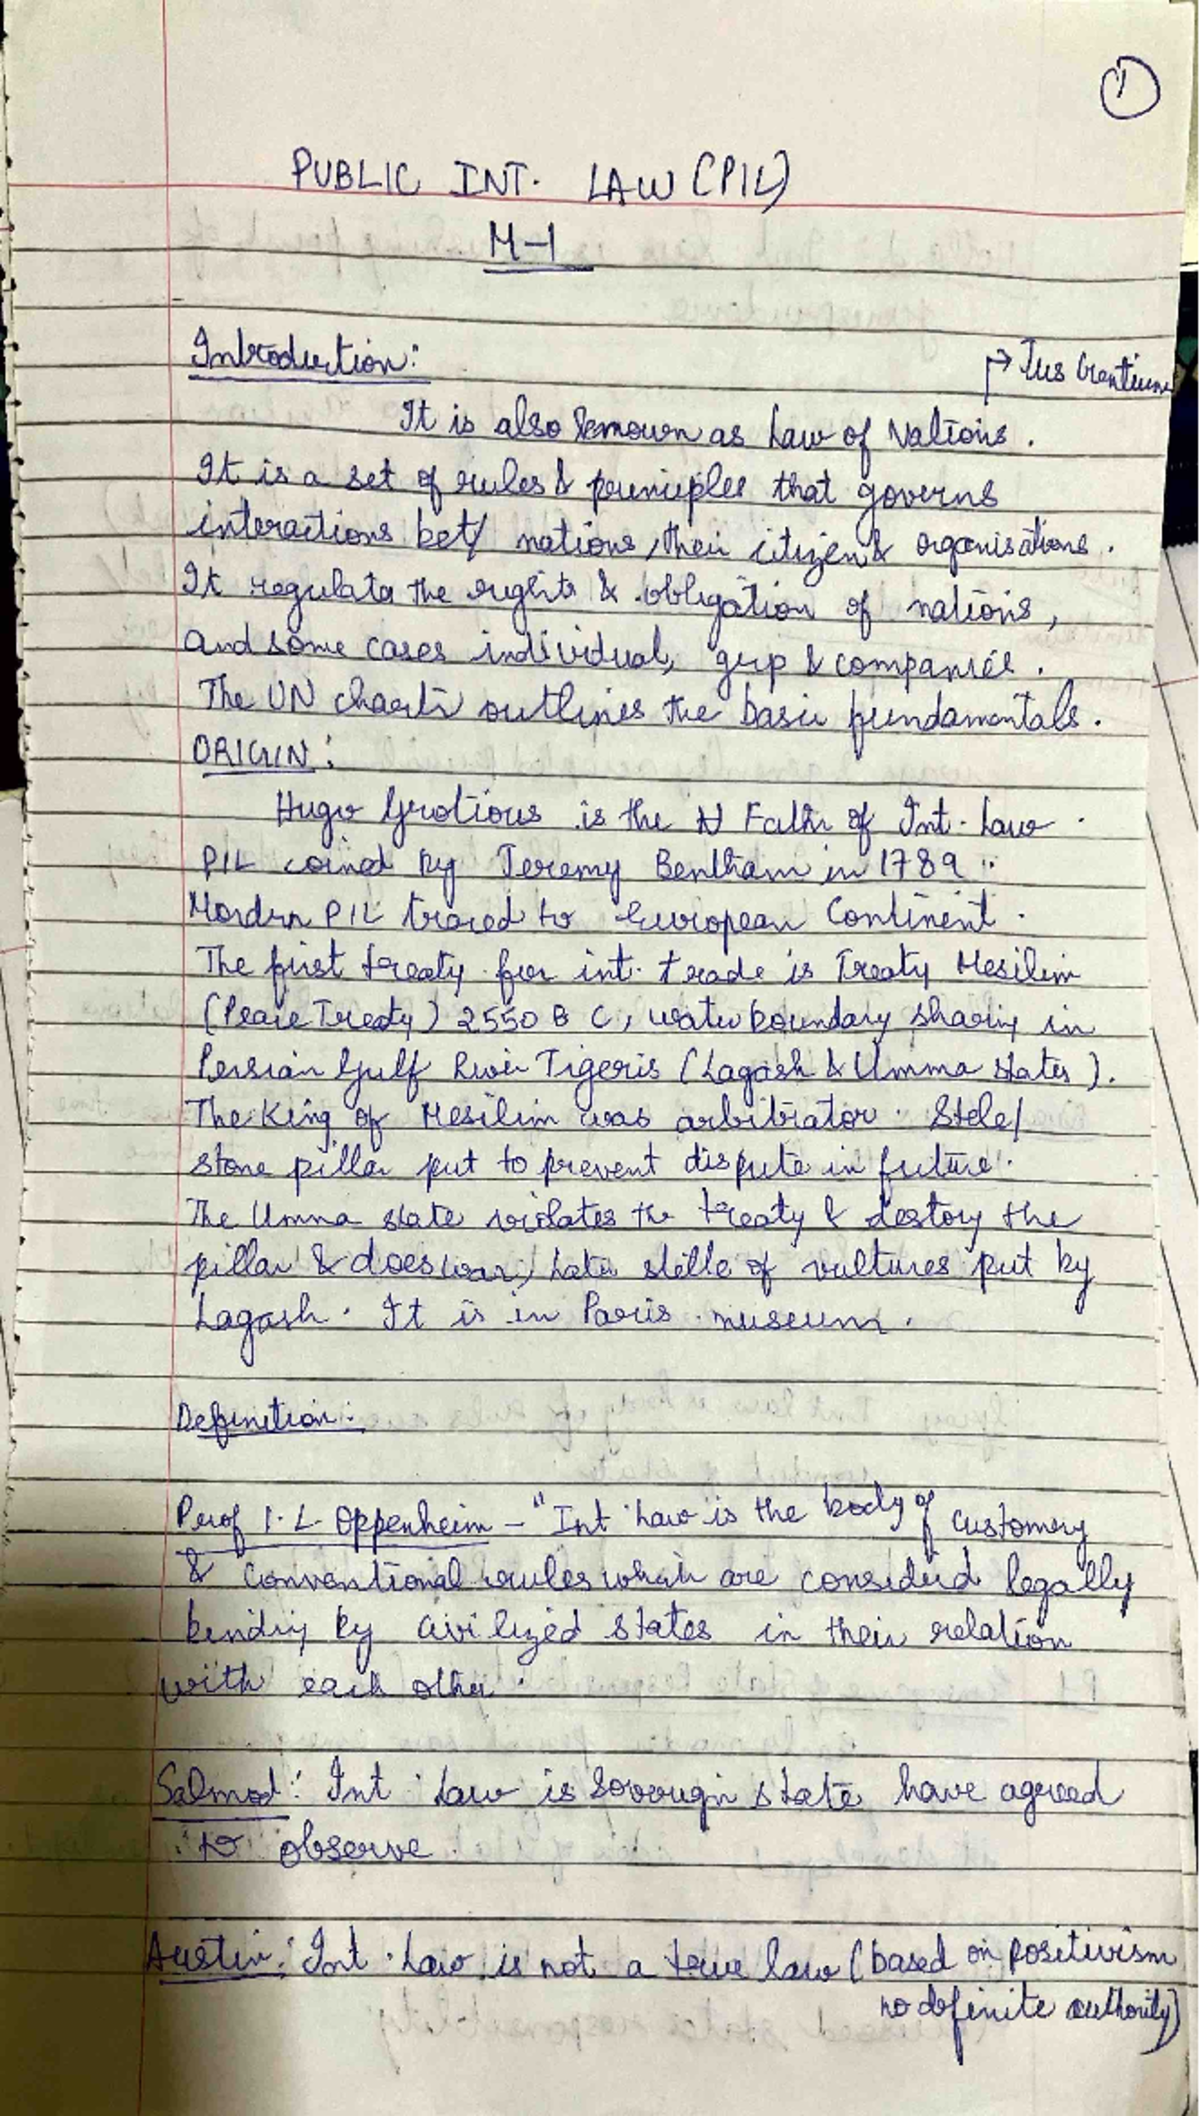 1
PUBLIC INT. LAW (PIL)
M-1
Introduction:
→ Jus Gentium
It is also known as Law of Nations.
It is a set of rules & principles that governs
interactions bet/ nations, their citizen & organisations.
It regulata the rights & obligation of nations,
and some cases individual, grp & companies.
The UN charter outlines the basic fundamentals.
ORIGIN:
Hugo Grotious is the Father of Int. Law.
PIL coined by Jeremy Bentham in 1789.
Mordern PIL traced to European Continent.
The first treaty for int. trade is Treaty Mesilim
(Peace Treaty) 2550 B C, water boundary sharing in
Persian Gulf River Tigeris (Lagash & Umma states).
The King of Mesilim was arbitrator. Stele/
stone pillar put to prevent dispute in future.
The Umma state violates the treaty & destory the
pillar & does war, Later stelle of vultures put by
Lagash. It is in Paris museum.
Definition:
Prof I. L. Oppenheim - "Int Law is the body of customery
& conventional rules which are considerd legally
binding by civilized states in their relation
with each other.
Salmod: Int Law is sovougn state have agreed
to observe.
Austin: Int. Law is not a true law (based on positivism
no definite authority)